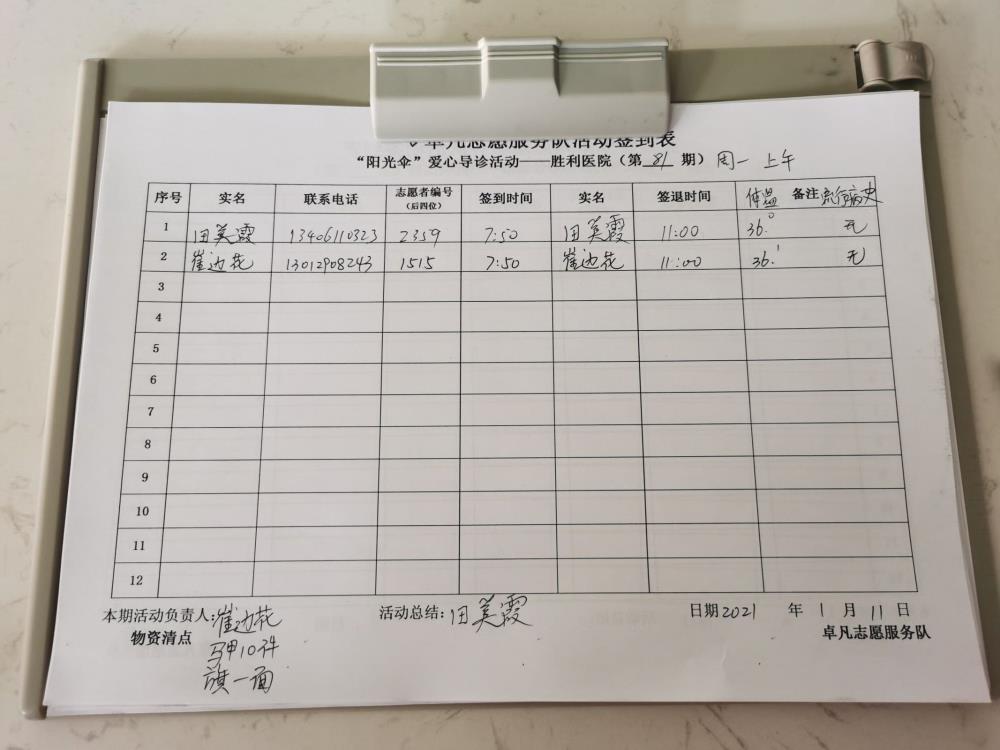 卓凡志愿服务队活动签到表
“阳光伞”爱心导诊活动——胜利医院（第 81 期） 周一 上午
序号 实名 联系电话 志愿者编号（后四位） 签到时间 实名 签退时间 体温 备注 流行病史
1 田美霞 13406110323 2359 7:50 田美霞 11:00 36.0 无
2 崔边花 13012908243 1515 7:50 崔边花 11:00 36.1 无
3
4
5
6
7
8
9
10
11
12
本期活动负责人:崔边花 活动总结: 田美霞 日期2021 年 1 月 11 日
物资清点 卓凡志愿服务队
马甲10件
旗一面